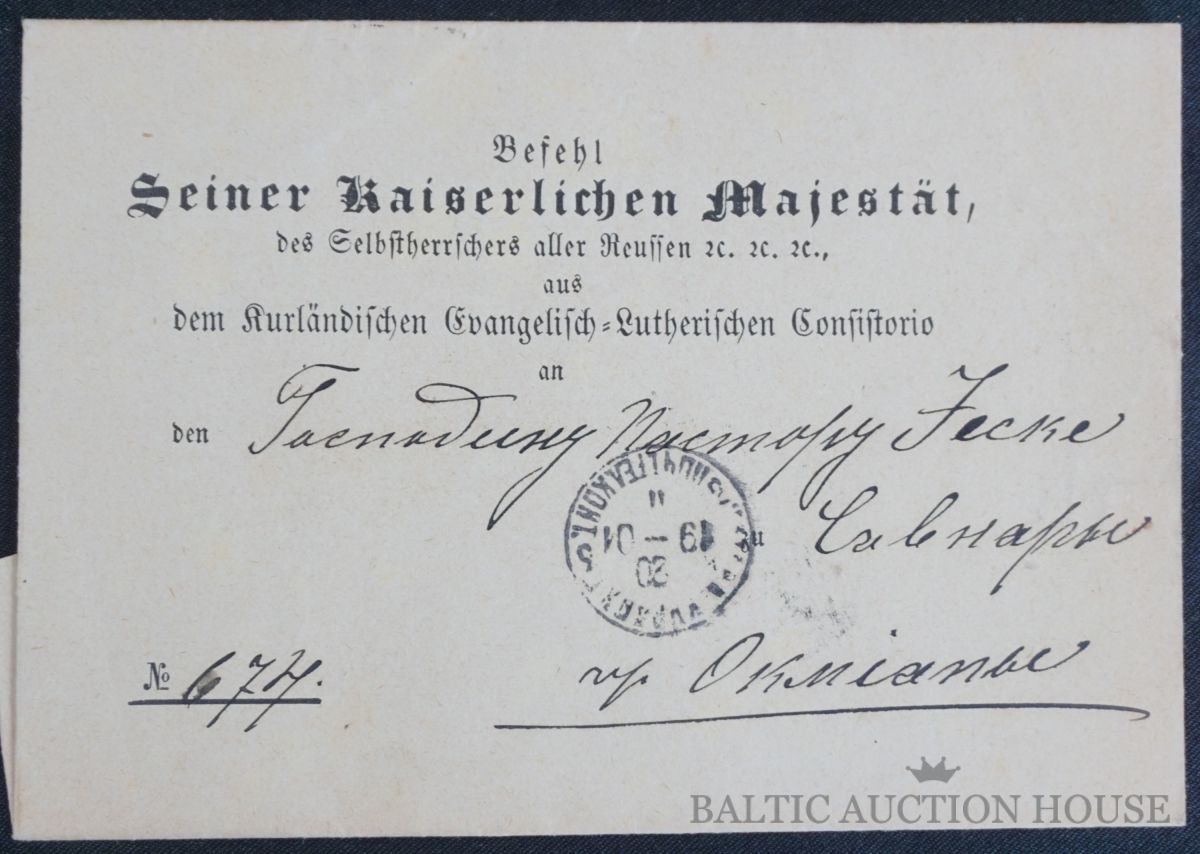 Befehl
Seiner Kaiserlichen Majestät,
des Selbstherrschers aller Reussen ꝛc. ꝛc. ꝛc.,
aus
dem Kurländischen Evangelisch-Lutherischen Consistorio
an
den Господину Пастору Jеске
zu
чр Окмiаны
№ 674.
20
19 — 01
II
BALTIC AUCTION HOUSE